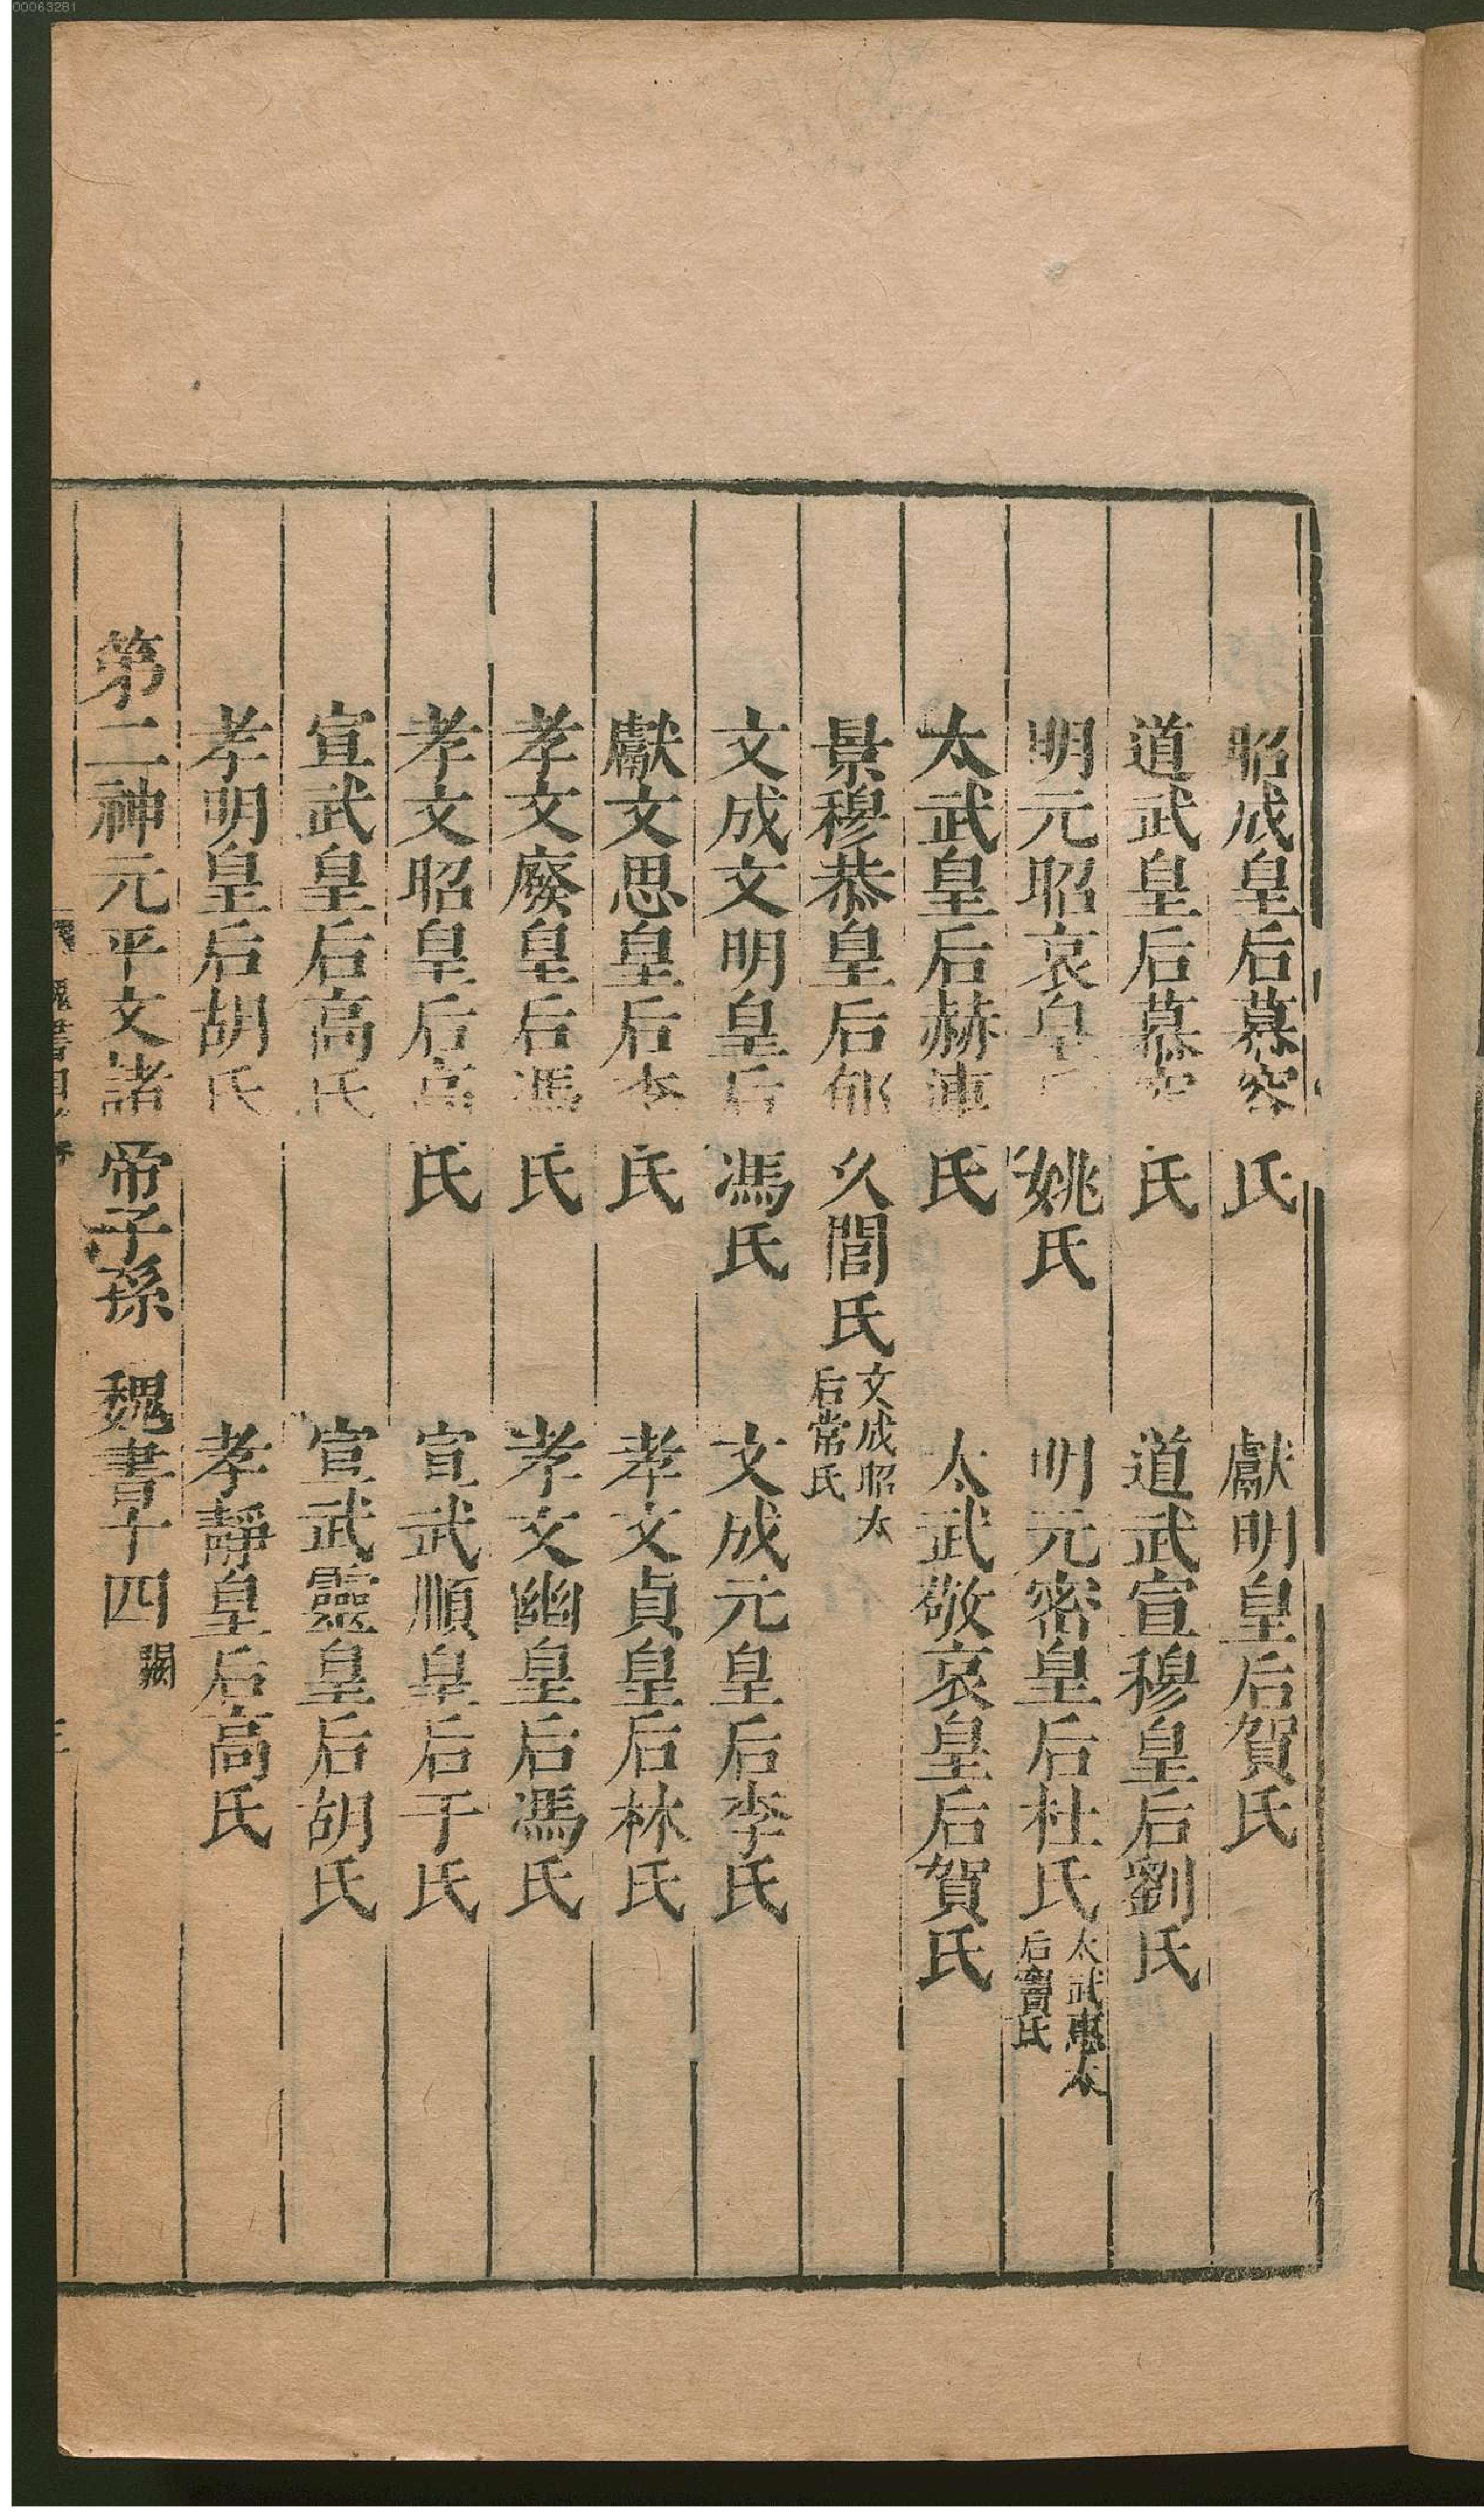 00063281
昭成皇后慕容氏　獻明皇后賀氏
道武皇后慕容氏　道武宣穆皇后劉氏
明元昭哀皇后姚氏　明元密皇后杜氏太武惠太后竇氏
太武皇后赫連氏　太武敬哀皇后賀氏
景穆恭皇后郁久閭氏文成昭太后常氏
文成文明皇后馮氏　文成元皇后李氏
獻文思皇后李氏　孝文貞皇后林氏
孝文廢皇后馮氏　孝文幽皇后馮氏
孝文昭皇后高氏　宣武順皇后于氏
宣武皇后高氏　宣武靈皇后胡氏
孝明皇后胡氏　孝靜皇后高氏
第二神元平文諸帝子孫　魏書十四闕